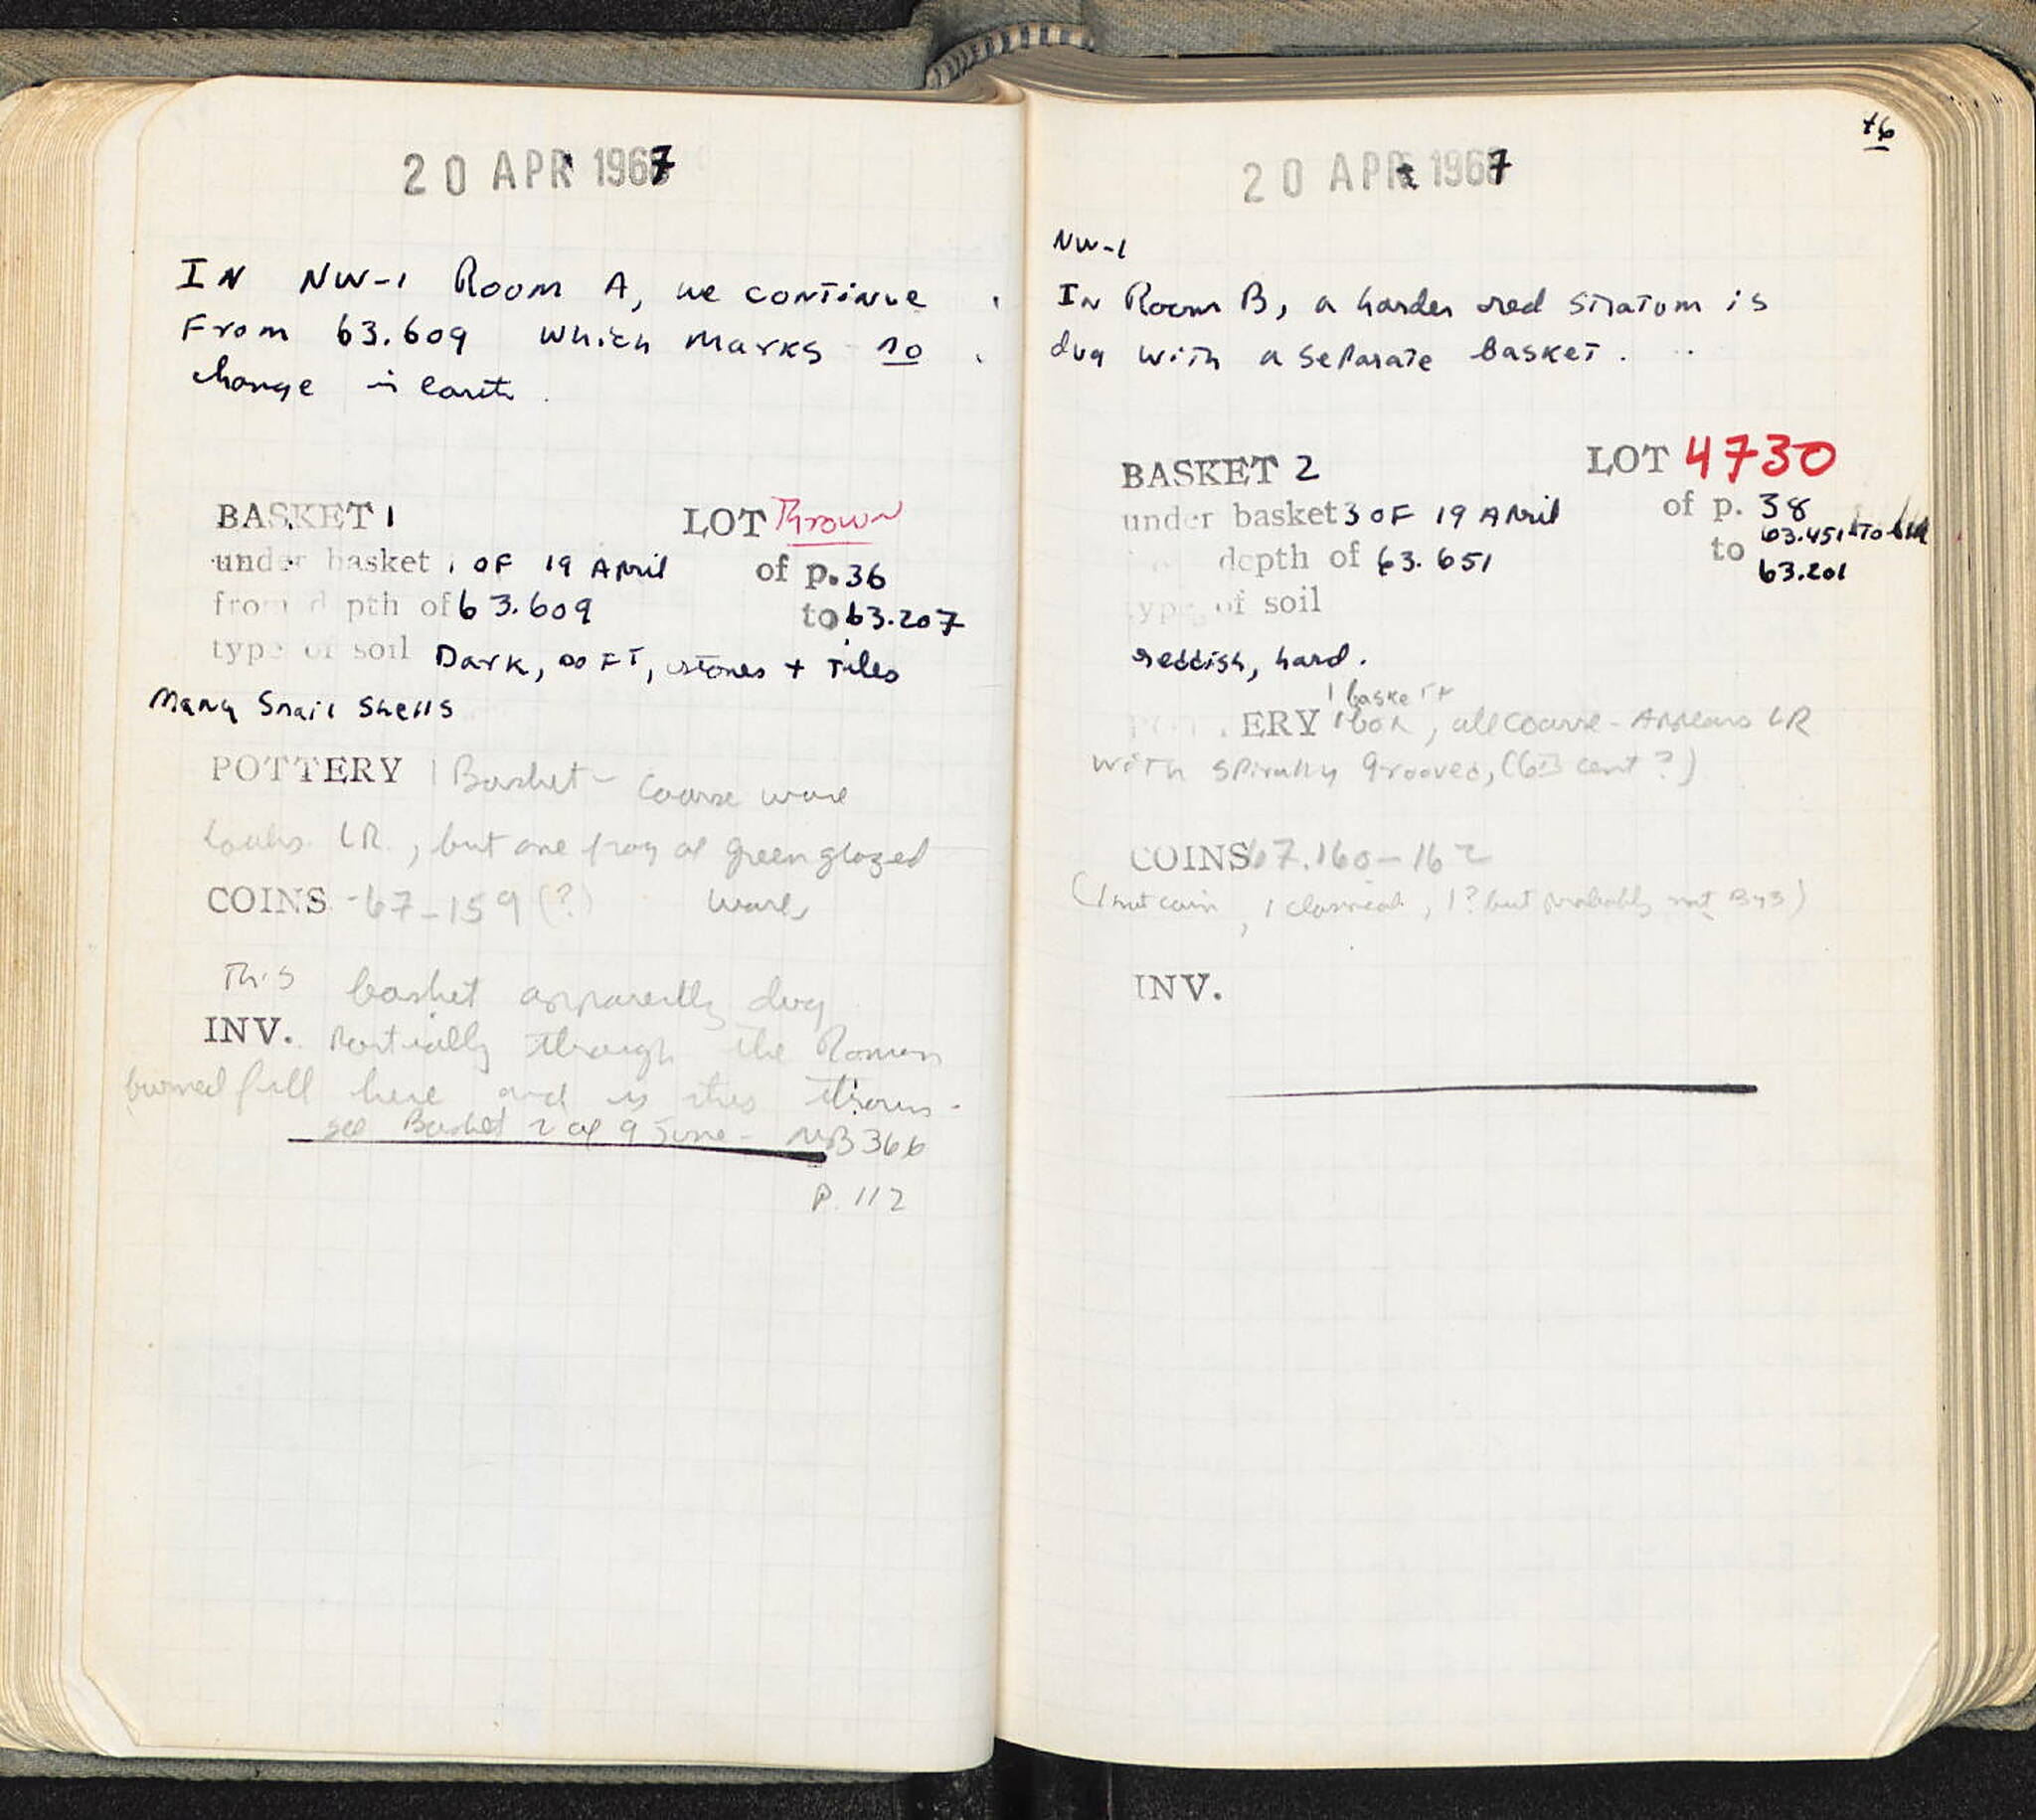 20 APR 1967
IN NW-1 Room A, we continue
From 63.609 which marks no
change in earth.
BASKET 1 LOT Thrown
under basket 1 OF 19 April of p. 36
from depth of 63.609 to 63.207
type of soil Dark, soft, stones + tiles
Many Snail Shells
POTTERY 1 Basket - Coarse ware
Looks LR., but one frag of green glazed
ware
COINS -67-159 (?)
This basket apparently dug
INV. Partially through the Roman
burned fill here and is thus thrown -
see Basket 2 of 9 June - NB 366
P. 112
46
20 APR 1967
NW-1
In Room B, a harder red stratum is
dug with a separate basket.
BASKET 2 LOT 4730
under basket 3 OF 19 April of p. 38
depth of 63.651 to 63.451 to
63.201
type of soil
reddish, hard.
1 basket
POTTERY 1 box, all coarse - Appears LR
with spirally grooved, (6th cent?)
COINS 67.160-162
(1 not coin, 1 classical, 1? but probably not Byz)
INV.